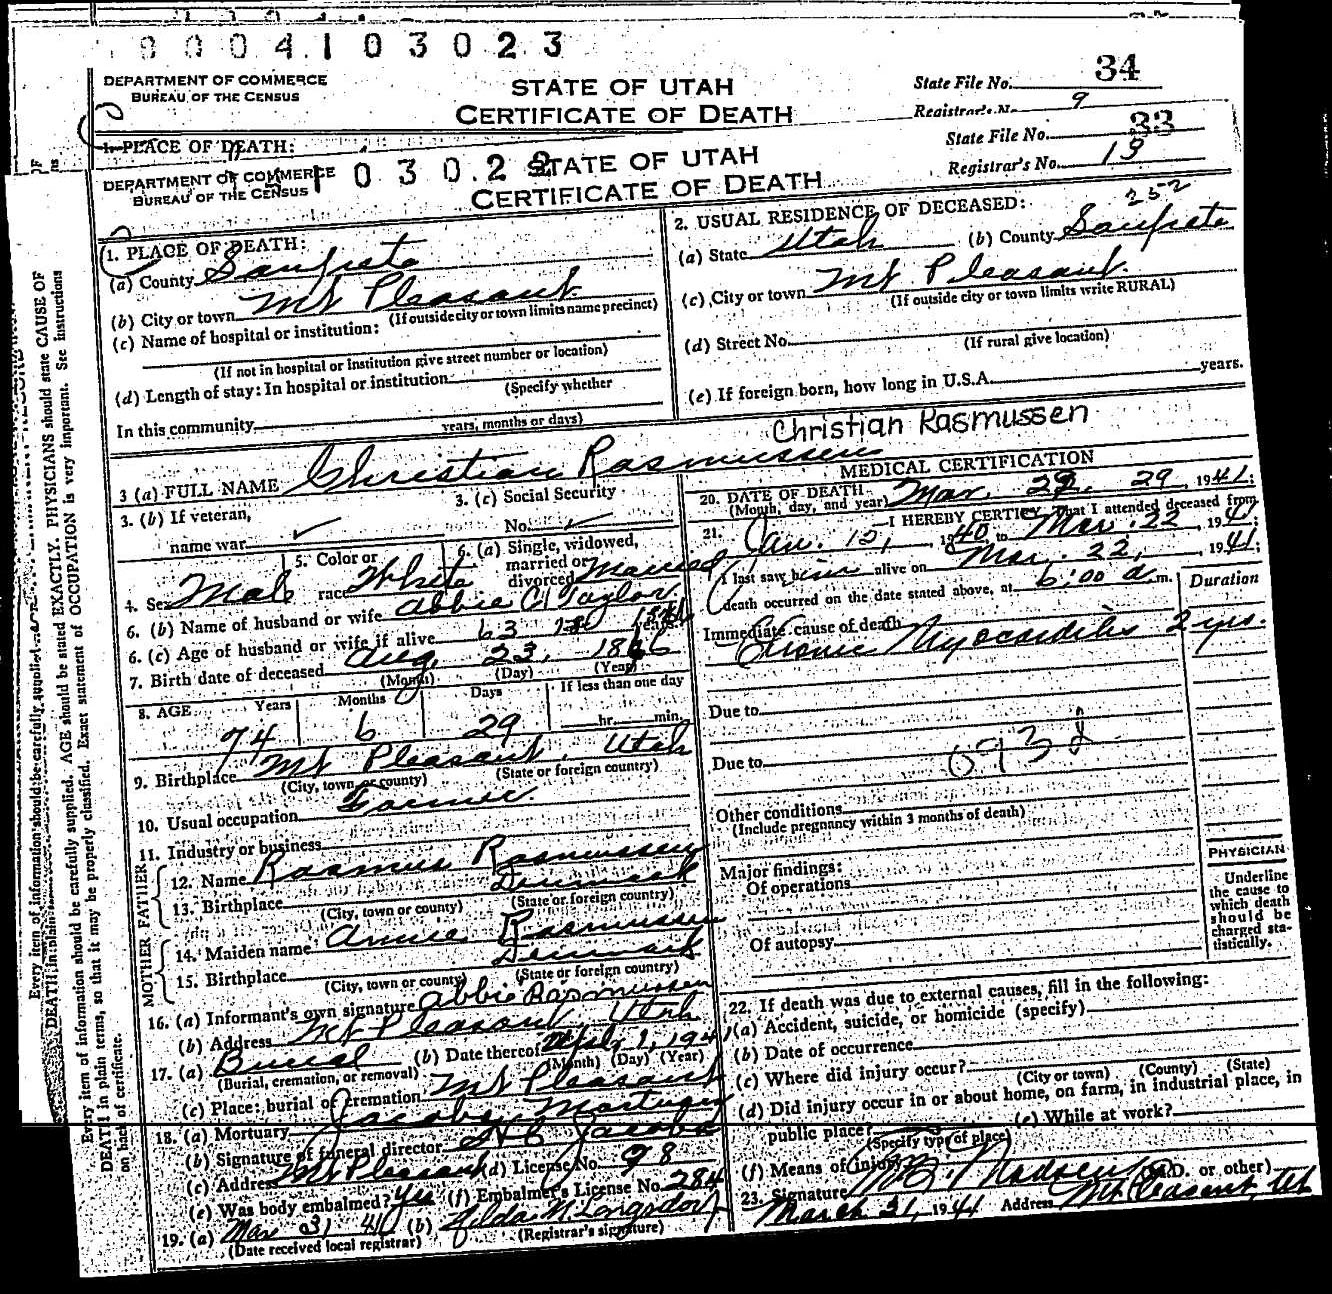 9 0 0 4 1 0 3 0 2 3
DEPARTMENT OF COMMERCE
BUREAU OF THE CENSUS
STATE OF UTAH
CERTIFICATE OF DEATH
State File No. 34
Registrar's No. 9
1. PLACE OF DEATH:
State File No. 33
Registrar's No. 13
DEPARTMENT OF COMMERCE
BUREAU OF THE CENSUS
1 0 3 0 2 2
STATE OF UTAH
CERTIFICATE OF DEATH
1. PLACE OF DEATH:
(a) County Sanpete
(b) City or town Mt Pleasant
(If outside city or town limits name precinct)
(c) Name of hospital or institution:
(If not in hospital or institution give street number or location)
(d) Length of stay: In hospital or institution
(Specify whether
In this community
years, months or days)
2. USUAL RESIDENCE OF DECEASED: 252
(a) State Utah (b) County Sanpete
(c) City or town Mt Pleasant
(If outside city or town limits write RURAL)
(d) Street No.
(If rural give location)
(e) If foreign born, how long in U.S.A. years.
Christian Rasmussen
3 (a) FULL NAME Christian Rasmussen
3. (b) If veteran,
name war ✓
3. (c) Social Security
No. ✓
4. Sex Male
5. Color or
race White
6. (a) Single, widowed,
married or
divorced Married
6. (b) Name of husband or wife Abbie C Taylor
6. (c) Age of husband or wife if alive 63 years
7. Birth date of deceased Aug. 23, 1866
(Month) (Day) (Year)
8. AGE Years Months Days If less than one day
74 6 29 hr. min.
9. Birthplace Mt Pleasant, Utah
(City, town or county) (State or foreign country)
10. Usual occupation Farmer
11. Industry or business
FATHER
12. Name Rasmus Rasmussen
13. Birthplace Denmark
(City, town or county) (State or foreign country)
MOTHER
14. Maiden name Annie Rasmussen
15. Birthplace Denmark
(City, town or county) (State or foreign country)
16. (a) Informant's own signature Abbie Rasmussen
(b) Address Mt Pleasant Utah
17. (a) Burial (b) Date thereof Apr. 1, 1941
(Burial, cremation, or removal) (Month) (Day) (Year)
(c) Place: burial or cremation Mt Pleasant
18. (a) Mortuary Jacobs Mortuary
(b) Signature of funeral director Jacobs
(c) Address Mt Pleasant (d) License No. 98
(e) Was body embalmed? Yes (f) Embalmer's License No. 284
19. (a) Mar 31 41 (b) Hilda N Longsdorf
(Date received local registrar) (Registrar's signature)
MEDICAL CERTIFICATION
20. DATE OF DEATH Mar. 29, 1941;
(Month, day, and year)
21. I HEREBY CERTIFY, That I attended deceased from
Jan. 12, 1940, to Mar. 22, 1941;
I last saw him alive on Mar. 22, 1941;
death occurred on the date stated above, at 6:00 a m.
Duration
Immediate cause of death
Chronic Myocarditis 2 yrs.
Due to
093 d
Due to
Other conditions
(Include pregnancy within 3 months of death)
Major findings:
Of operations
Of autopsy
PHYSICIAN
Underline
the cause to
which death
should be
charged sta-
tistically.
22. If death was due to external causes, fill in the following:
(a) Accident, suicide, or homicide (specify)
(b) Date of occurrence
(c) Where did injury occur?
(City or town) (County) (State)
(d) Did injury occur in or about home, on farm, in industrial place, in
public place? (e) While at work?
(Specify type of place)
(f) Means of injury
23. Signature Madsen (M.D. or other)
March 31, 1941 Address Mt Pleasant, Utah
Every item of information should be carefully supplied. AGE should be stated EXACTLY. PHYSICIANS should state CAUSE OF
DEATH in plain terms, so that it may be properly classified. Exact statement of OCCUPATION is very important. See instructions
on back of certificate.